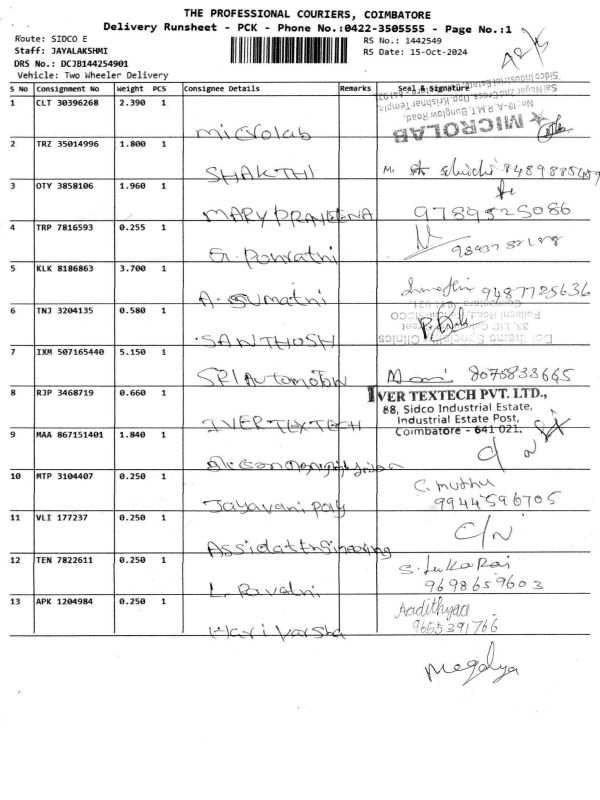 THE PROFESSIONAL COURIERS, COIMBATORE
Delivery Runsheet - PCK - Phone No.:0422-3505555 - Page No.:1
Route: SIDCO E
RS No.: 1442549
Staff: JAYALAKSHMI
RS Date: 15-Oct-2024
DRS No.: DCJB144254901
Vehicle: Two Wheeler Delivery
S No Consignment No Weight PCS Consignee Details Remarks Seal & Signature
1 CLT 30396268 2.390 1
microlab MICROLAB
2 TRZ 35014996 1.800 1
SHAKTHI
3 OTY 3858106 1.960 1
MARY PRAVEENA 9789525086
4 TRP 7816593 0.255 1
G. Ponratni
5 KLK 8186863 3.700 1
A. Sumatni 9487725636
6 TNJ 3204135 0.580 1
SANTHOSH
7 IXM 507165440 5.150 1
SRI Automotion Mani 8075833665
8 RJP 3468719 0.660 1
IVER TEXTECH PVT. LTD.,
88, Sidco Industrial Estate,
Industrial Estate Post,
Coimbatore - 641 021.
IVER TEXTECH
9 MAA 867151401 1.840 1
C/N
10 MTP 3104407 0.250 1
C. muthu
9944596705
Jayavani
11 VLI 177237 0.250 1
C/N
Engineering
12 TEN 7822611 0.250 1
9698659603
L. Ravatni
13 APK 1204984 0.250 1
Aadithyaa
9655391766
Hari Varsha